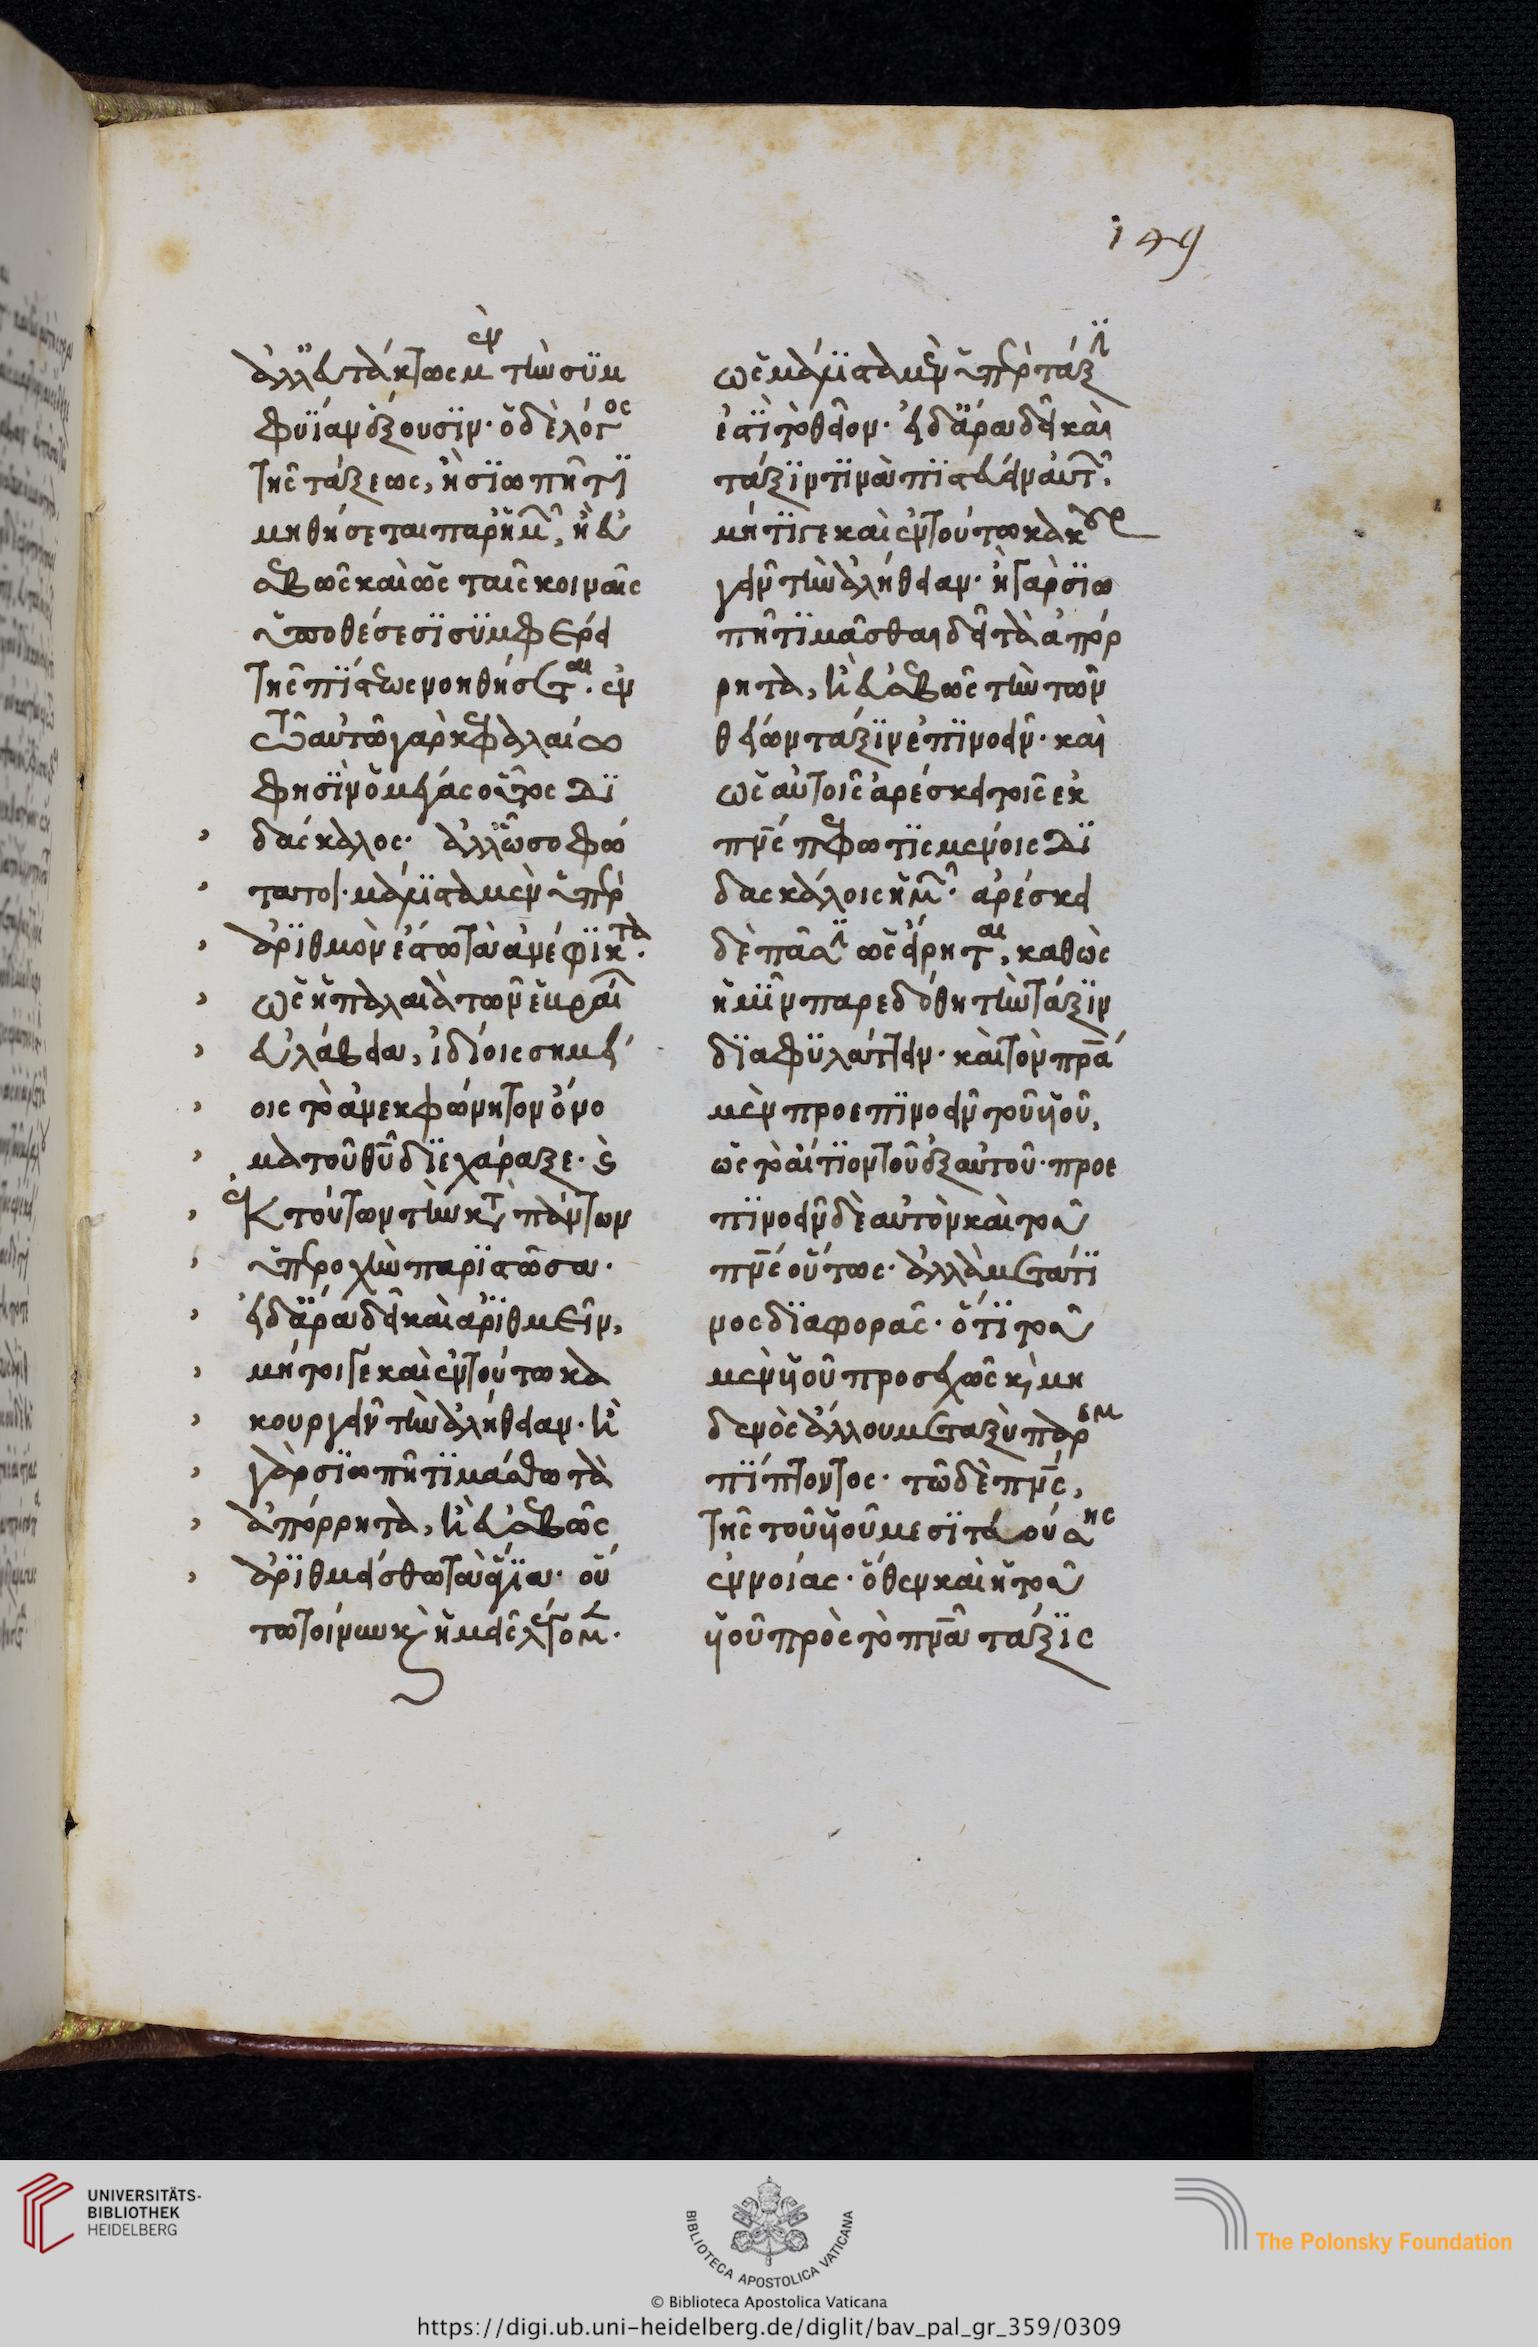 149
ἀλλ' εὐτάκτως μὲν τὴν συμ
φυΐαν ἕξουσιν· ὁ δὲ λόγος
τῆς τάξεως, ἢ σιωπῇ τι
μηθήσεται παρ' ἡμῖν, ἢ εὐ
σεβῶς καὶ ὡς ταῖς κοιναῖς
ὑποθέσεσι συμφέρει
τῆς πίστεως νοηθήσεται. ἐν
τῷ αὐτῷ γὰρ κεφαλαίῳ
φησὶν ὁ μέγας οὗτος δι
δάσκαλος· ἀλλ' ὦ σοφώ
τατοι· μάλιστα μὲν ὑπὲρ
ἀριθμὸν ἔστω τὰ ἀνέφικτα·
ὡς ἡ παλαιὰ τῶν ἑβραίων
εὐλάβεια, ἰδίοις σημεί
οις τὸ ἀνεκφώνητον ὄνο
μα τοῦ θυ διεχάραξε· καὶ
ἐκ τούτων τὴν κατὰ πάντων
ὑπεροχὴν παριστῶσα·
εἰ δ' ἄρα δεῖ καὶ ἀριθμεῖν,
μήτοιγε καὶ ἐν τούτω κα
κουργεῖν τὴν ἀλήθειαν· ἢ
γὰρ σιωπῇ τιμάσθω τὰ
ἀπόρρητα, ἢ εὐσεβῶς
ἀριθμείσθω τὰ ἅγια· οὕ
τω τοίνυν καὶ ἡμεῖς λέγομεν·
ὡς μάλιστα μὲν ὑπὲρ τάξιν
ἐστὶ τὸ θεῖον· εἰ δ' ἄρα δεῖ καὶ
τάξιν τινὰ πιστεύειν αὐτοῖς·
μήτιγε καὶ ἐν τούτω κακουρ
γεῖν τὴν ἀλήθειαν· ἢ γὰρ σιω
πῇ τιμᾶσθαι δεῖ τὰ ἀπόρ
ρητα, ἢ εὐσεβῶς τὴν τῶν
θείων τάξιν ἐπινοεῖν· καὶ
ὡς αὐτοῖς ἀρέσκει τοῖς ἐκ
πνς πεφωτισμένοις δι
δασκάλοις ἡμῶν· ἀρέσκει
δὲ πᾶσιν ὡς εἴρηται, καθὼς
ἡμῖν παρεδόθη τὴν τάξιν
διαφυλάττειν· καὶ τὸν πρα
μὲν προεπινοεῖν τοῦ υἱοῦ,
ὡς τὸ αἴτιον τοῦ ἐξ αὐτοῦ· προε
πινοεῖν δὲ αὐτὸν καὶ τοῦ
πνς οὕτως· ἀλλὰ μετά τι
νος διαφορᾶς· ὅτι τοῦ
μὲν υἱοῦ προσεχῶς καὶ μη
δενὸς ἄλλου μεταξὺ παρεμ
πίπτοντος· τῶ δὲ πνς,
τῆς τοῦ υἱοῦ μεσιτευούσης
ἐννοίας· ὅθεν καὶ ἡ τοῦ
υἱοῦ πρὸς τὸ πνα τάξις
UNIVERSITÄTS-
BIBLIOTHEK
HEIDELBERG
BIBLIOTECA APOSTOLICA VATICANA
The Polonsky Foundation
© Biblioteca Apostolica Vaticana
https://digi.ub.uni-heidelberg.de/diglit/bav_pal_gr_359/0309